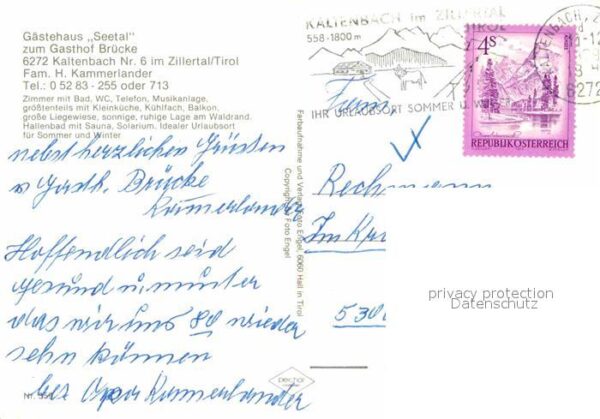 Gästehaus „Seetal"
zum Gasthof Brücke
6272 Kaltenbach Nr. 6 im Zillertal/Tirol
Fam. H. Kammerlander
Tel.: 0 52 83 - 255 oder 713
Zimmer mit Bad, WC, Telefon, Musikanlage,
größtenteils mit Kleinküche, Kühlfach, Balkon,
große Liegewiese, sonnige, ruhige Lage am Waldrand.
Hallenbad mit Sauna, Solarium. Idealer Urlaubsort
für Sommer und Winter
nebst herzlichen Grüsten
v Gasth. Brücke
Kammerlander
Hoffendlich seid
gesund u. munter
das wir uns 80 wieder
sehn können
bes Opa Kammerlander
Farbaufnahme und Verlag Foto Engel, 6060 Hall in Tirol
Copyright by Foto Engel
KALTENBACH im ZILLERTAL
TIROL
558-1800 m
IHR URLAUBSORT SOMMER u. W
KALTENBACH, Z
6272
4S
REPUBLIK ÖSTERREICH
Fam.
Rechmann
Im Kr
530
privacy protection
Datenschutz